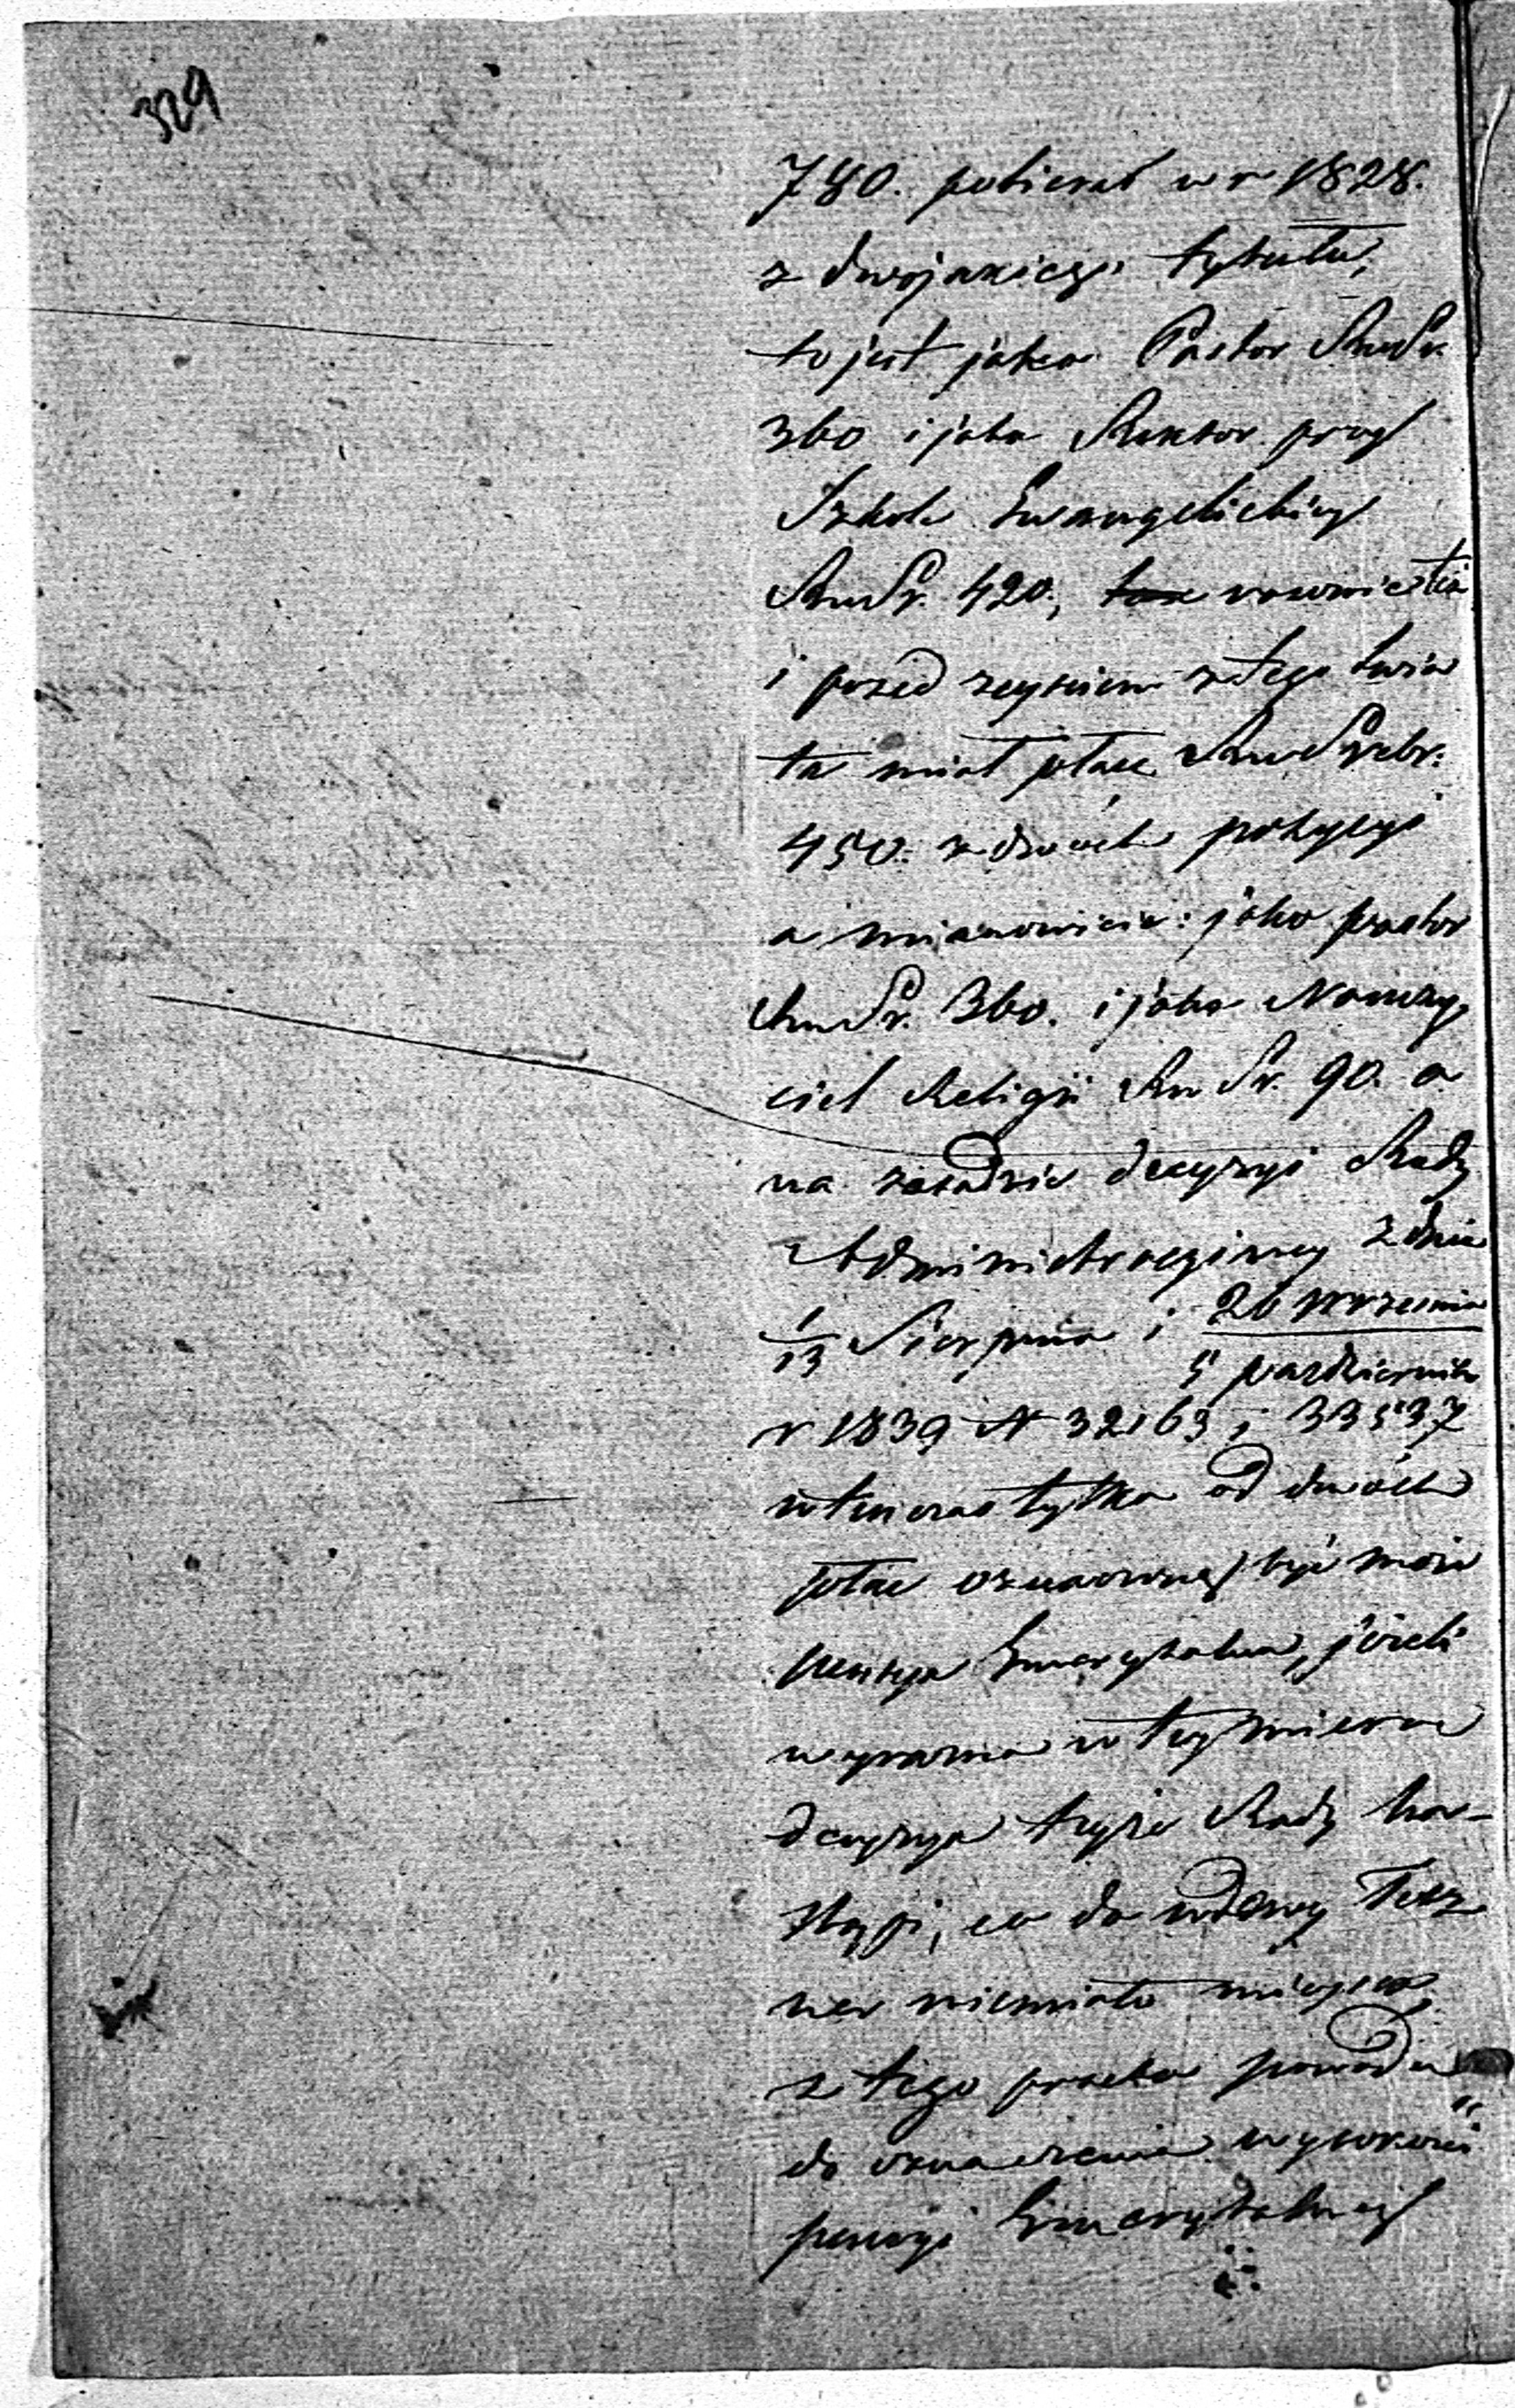 329
780. pobierał w r 1828.
z dwojakiego tytułu,
to jest jako Pastor RuSr.
360 i jako Rektor przy
Szkole Ewangelickiey
RuSr. 420,
i przed zeysciem z tego świa
ta miał płacę Ru Srebr.
450. z dwóch pozycyi
a mianowicie: jako pastor
RuSr. 360. i jako Nauczy
ciel Religii Ru Sr. 90. a
na zasadzie decyzyi Rady
Administracyiney z dnia
1/13 Sierpnia i 26 Września
5 pazdziernika
r 1839 N 32163 i 33537
wtenczas tylko od dwóch
płac oznaczoną być może
pensya Emerytalna, jeżeli
wyrazna w tey mierze
decyzya teyże Rady na-
stąpi, co do wdowy Tesz
ner niemiało mieysca,
z tego przeto powodu
do oznaczenia wysokości
pensyi Emerytalnej